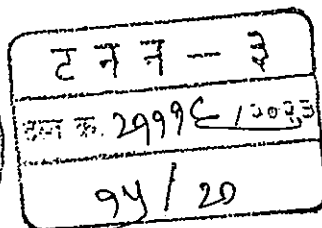 ट न न - ३
दस्त क्र. २११९६ /२०२३
१५ / २०